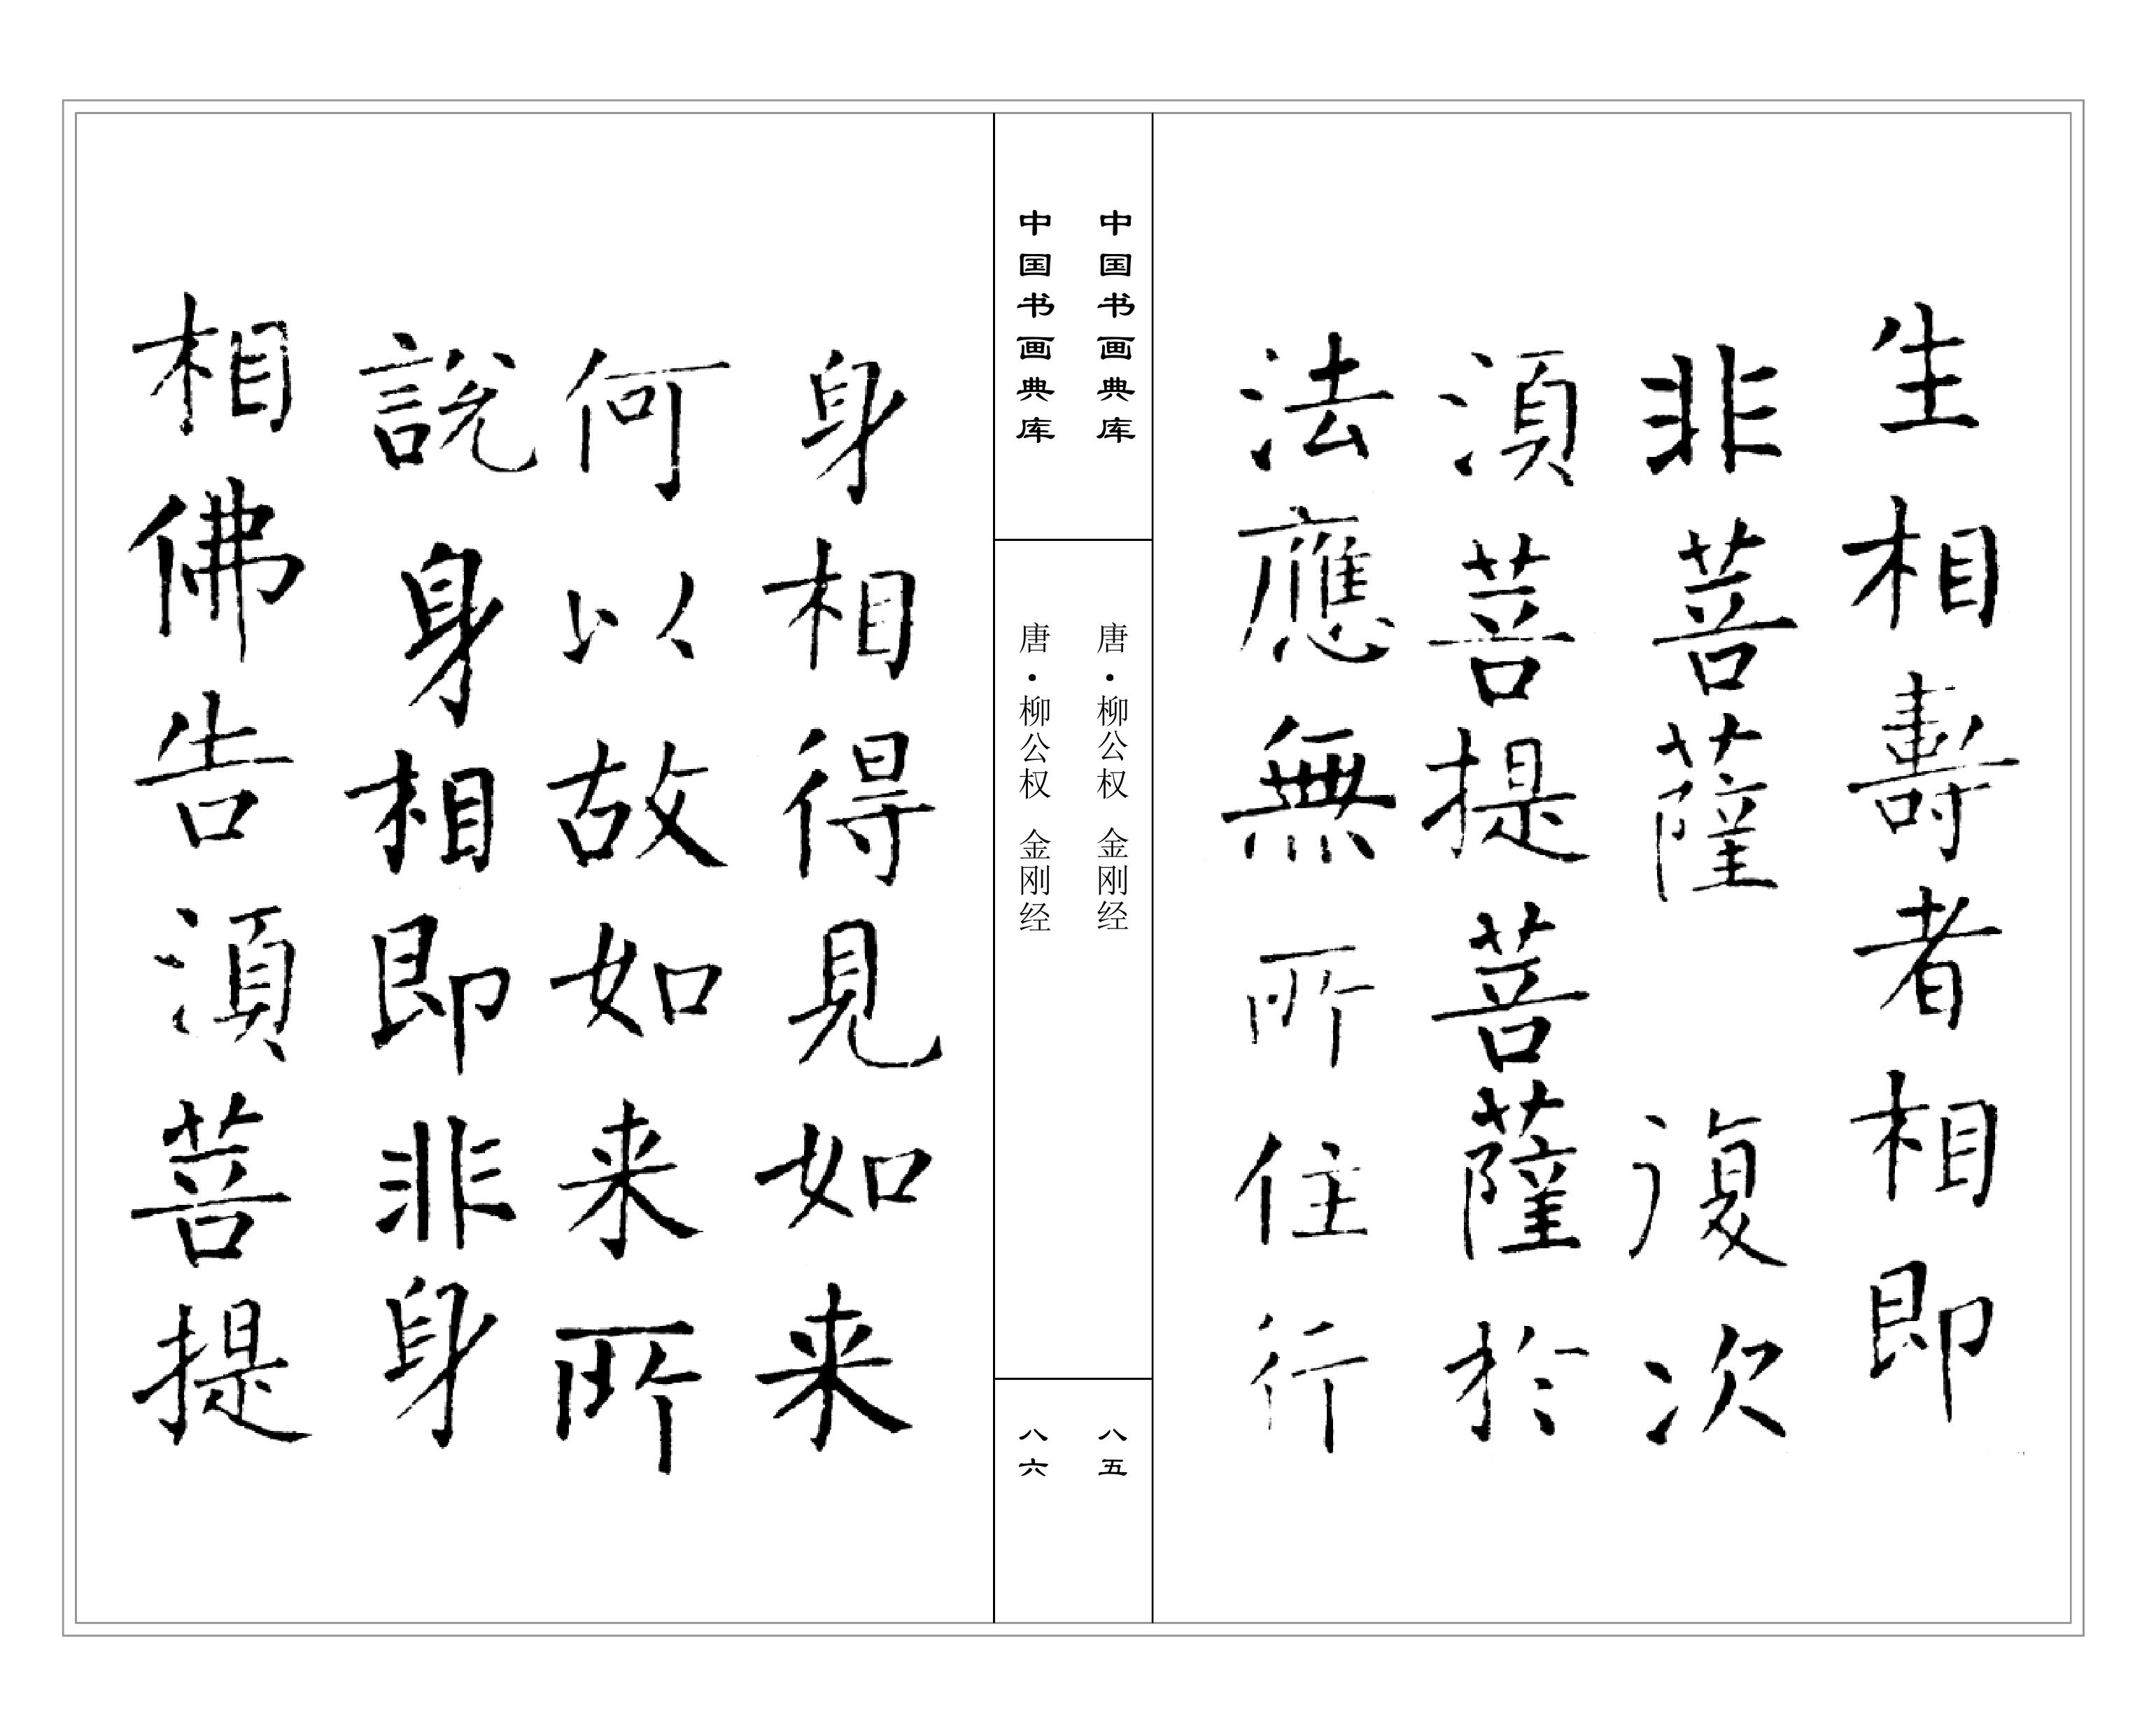 生相壽者相即
非菩薩 復次
湏菩提菩薩扵
法應無所住行
中国书画典库
唐·柳公权 金刚经
八五
中国书画典库
唐·柳公权 金刚经
八六
身相得見如来
何以故如来所
說身相即非身
相佛告湏菩提